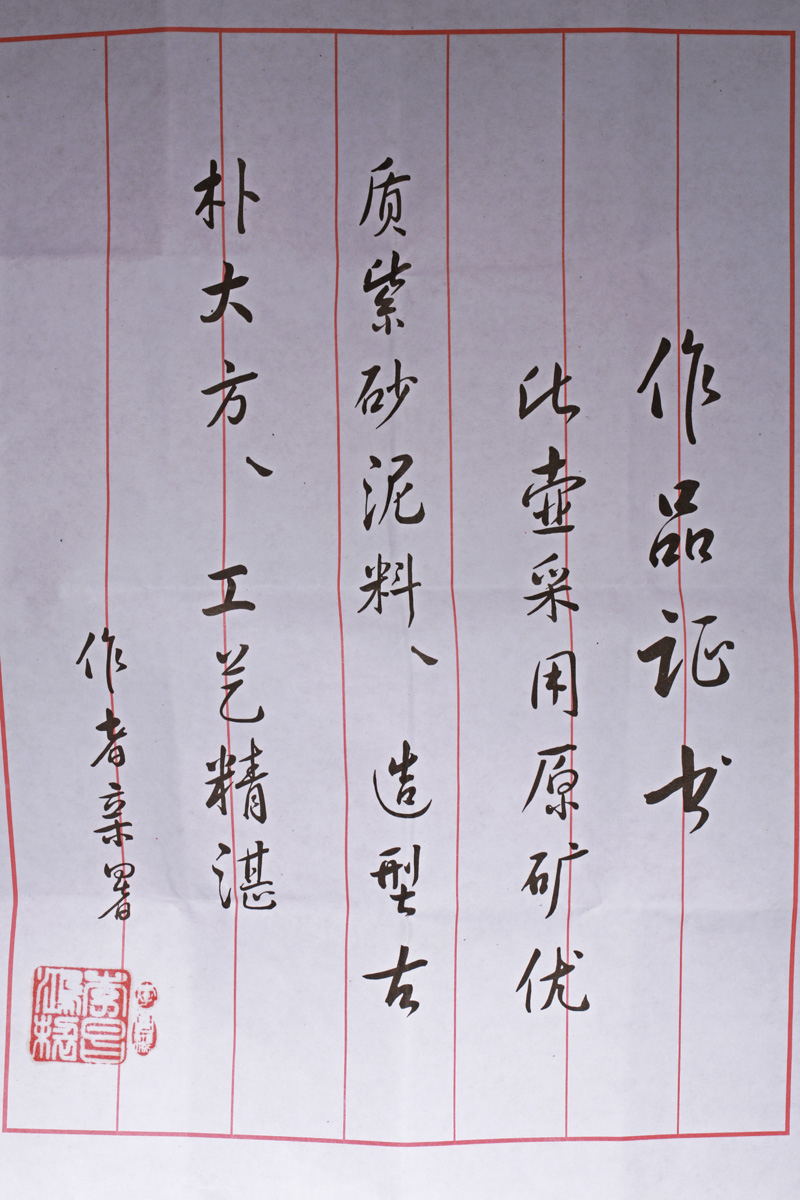 作品证书
此壶采用原矿优
质紫砂泥料、造型古
朴大方、工艺精湛
作者亲署